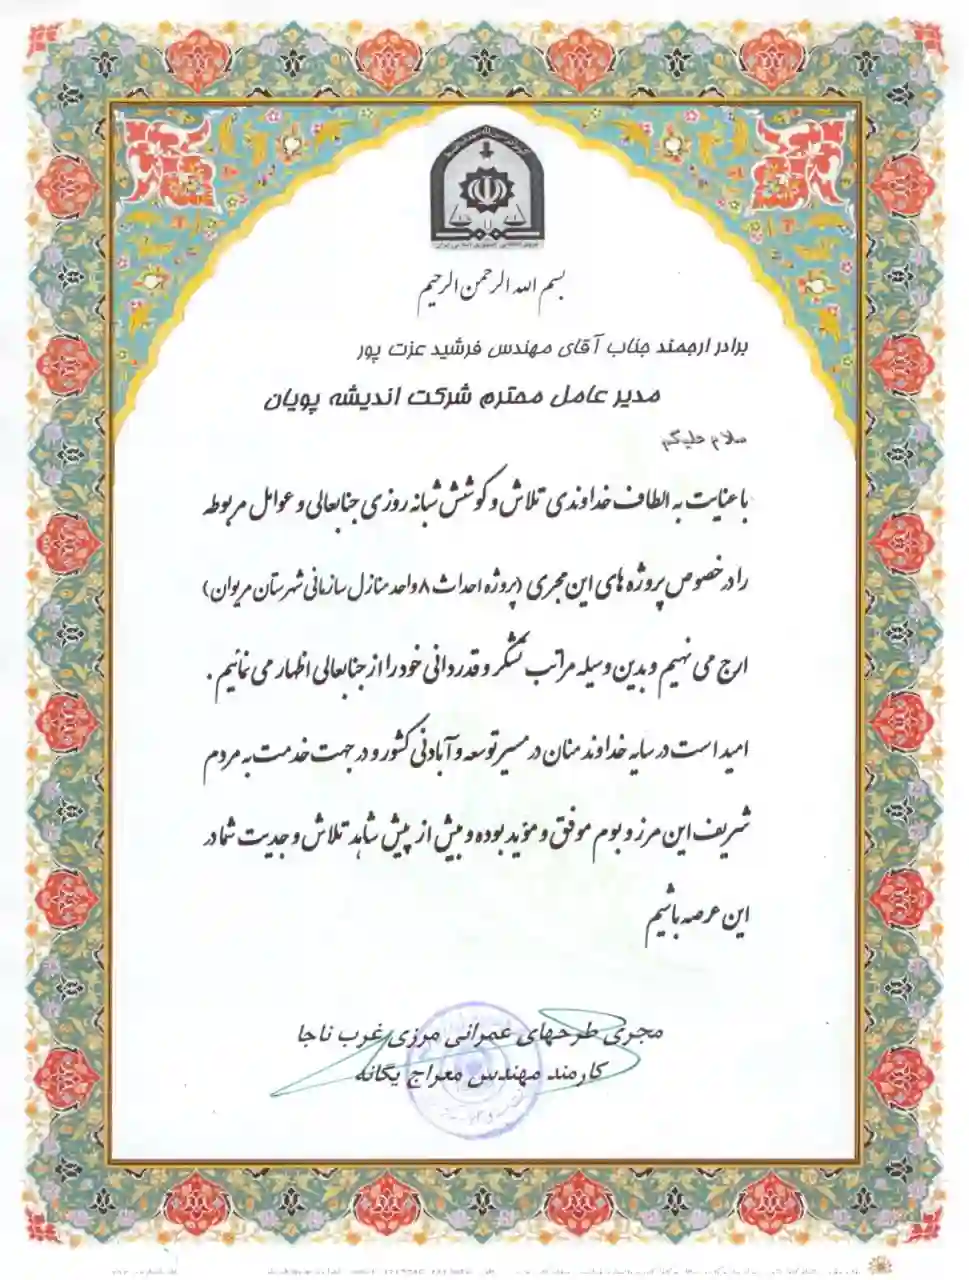 بسم الله الرحمن الرحیم
برادر ارجمند جناب آقای مهندس فرشید عزت پور
مدیر عامل محترم شرکت اندیشه پویان
سلام علیکم
با عنایت به الطاف خداوندی تلاش و کوشش شبانه روزی جنابعالی و عوامل مربوطه
را در خصوص پروژه های این مجری (پروژه احداث ۸ واحد منازل سازمانی شهرستان مریوان)
ارج می نهیم و بدین وسیله مراتب تشکر و قدردانی خود را از جنابعالی اظهار می نمائیم .
امید است در سایه خداوند منان در مسیر توسعه و آبادنی کشور و در جهت خدمت به مردم
شریف این مرز و بوم موفق و مؤید بوده و بیش از پیش شاهد تلاش و جدیت شما در
این عرصه باشیم
مجری طرحهای عمرانی مرزی غرب ناجا
کارمند مهندس معراج یگانه